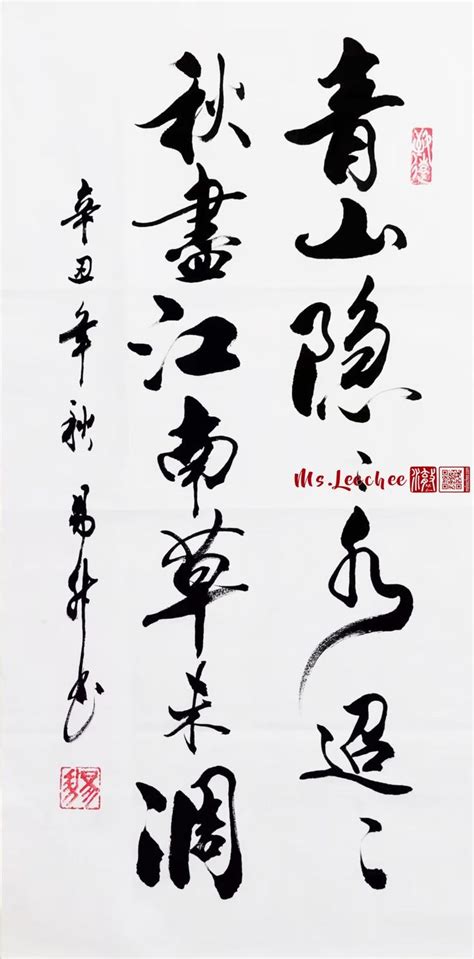 青山隐々水迢々
秋盡江南草未凋
辛丑年秋易升书
Ms.Leechee